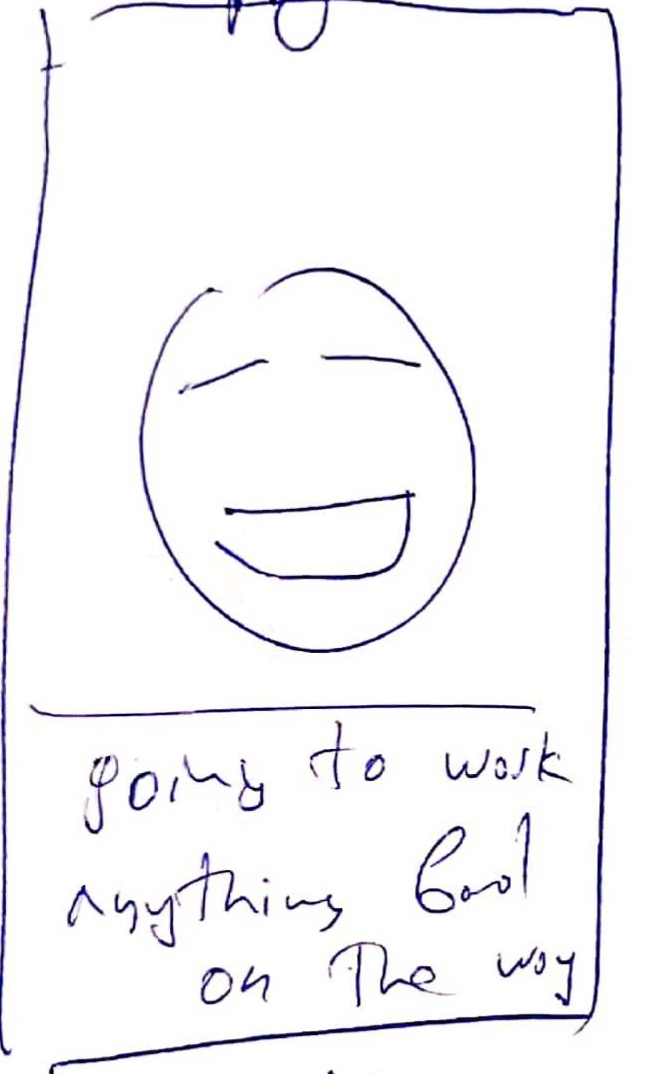 going to work
anything bad
on the way